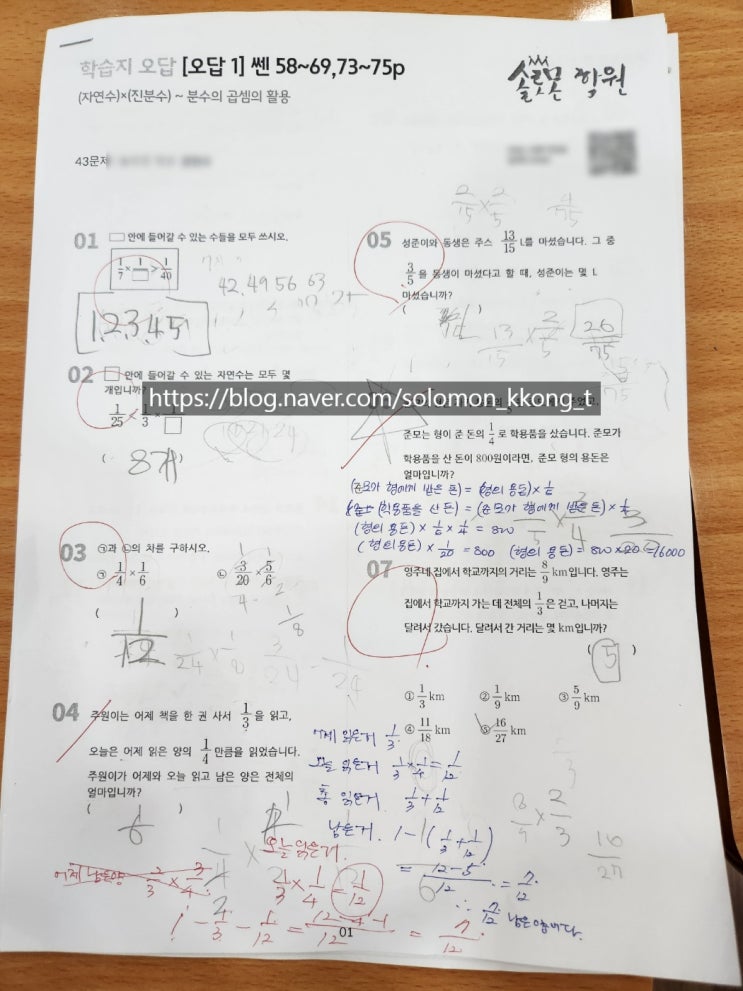 학습지 오답 [오답 1] 쎈 58~69,73~75p
솔로몬 학원
(자연수)×(진분수) ~ 분수의 곱셈의 활용
43문제
01 □ 안에 들어갈 수 있는 수들을 모두 쓰시오.
1/7 × 1/□ > 1/40
42 49 56 63
1,2,3,4,5
02 □ 안에 들어갈 수 있는 자연수는 모두 몇
개입니까?
1/25 < 1/3 × 1/□
( )
8개
03 ㉠과 ㉡의 차를 구하시오.
㉠ 1/4 × 1/6 ㉡ 3/20 × 5/6
( )
1/12
1/8
1/24
04 주원이는 어제 책을 한 권 사서 1/3 을 읽고,
오늘은 어제 읽은 양의 1/4 만큼을 읽었습니다.
주원이가 어제와 오늘 읽고 남은 양은 전체의
얼마입니까?
( )
1/6
어제 남은양 2/3 × 3/4
오늘 읽은거.
1/3 × 1/4 = 1/12
1 - 1/3 - 1/12 = 12-4-1/12 = 7/12
2/15 × 2/5 4/75
05 성준이와 동생은 주스 13/15 L를 마셨습니다. 그 중
3/5 을 동생이 마셨다고 할 때, 성준이는 몇 L
마셨습니까?
( )
13/15 × 2/5 26/75
https://blog.naver.com/solomon_kkong_t
준모는 형이 준 돈의 1/4 로 학용품을 샀습니다. 준모가
학용품을 산 돈이 800원이라면, 준모 형의 용돈은
얼마입니까?
(준모가 형에게 받은 돈) = (형의 용돈) × 1/5
(학용품을 산 돈) = (준모가 형에게 받은 돈) × 1/4
(형의 용돈) × 1/5 × 1/4 = 800
(형의 용돈) × 1/20 = 800 (형의 용돈) = 800 × 20 = 16000
07 영주네 집에서 학교까지의 거리는 8/9 km입니다. 영주는
집에서 학교까지 가는 데 전체의 1/3 은 걷고, 나머지는
달려서 갔습니다. 달려서 간 거리는 몇 km입니까?
( 5 )
① 1/3 km ② 1/9 km ③ 5/9 km
④ 11/18 km ⑤ 16/27 km
8/9 × 2/3
16/27
어제 읽은거 1/3
오늘 읽은거 1/3 × 1/4 = 1/12
총 읽은거 1/3 + 1/12
남은거. 1-(1/3 + 1/12)
= 12-5/12 = 7/12
∴ 7/12 남은양이다.
01